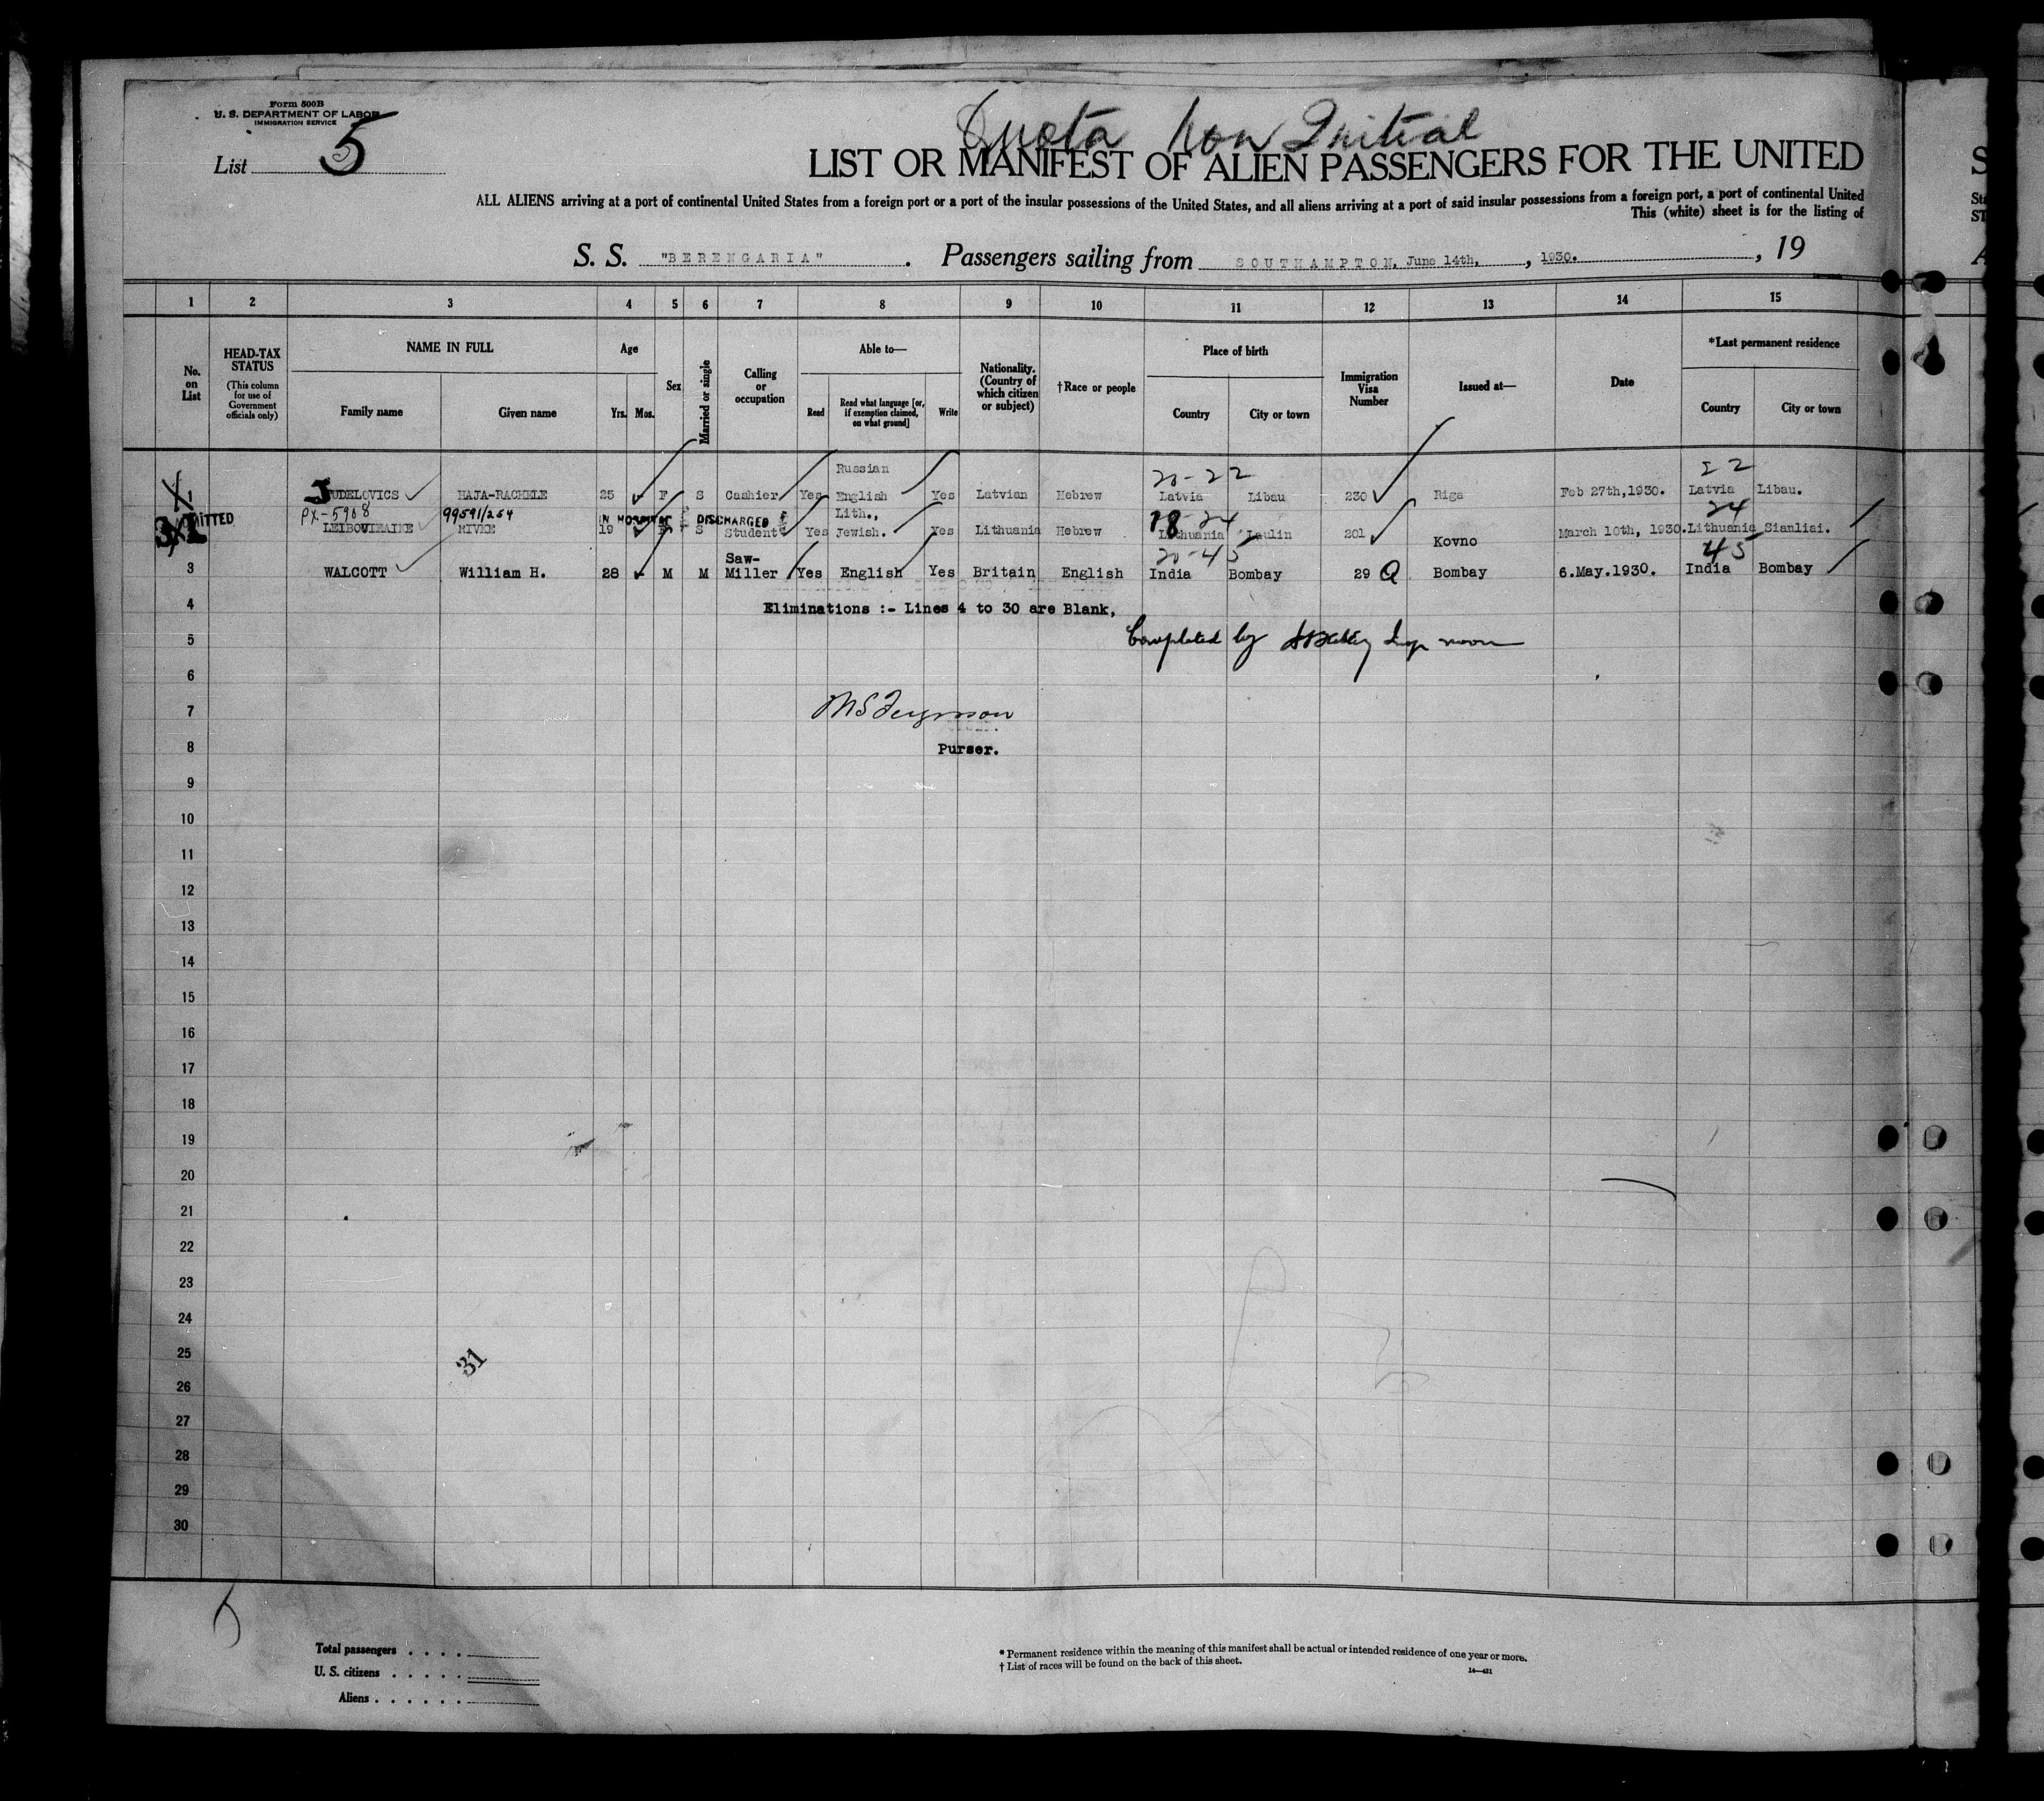 Form 500B
U. S. DEPARTMENT OF LABOR
IMMIGRATION SERVICE
List 5
Quota Non Initial
LIST OR MANIFEST OF ALIEN PASSENGERS FOR THE UNITED
ALL ALIENS arriving at a port of continental United States from a foreign port or a port of the insular possessions of the United States, and all aliens arriving at a port of said insular possessions from a foreign port, a port of continental United
This (white) sheet is for the listing of
S. S. "BERENGARIA" . Passengers sailing from SOUTHAMPTON, June 14th, , 1930. , 19
1 2 3 4 5 6 7 8 9 10 11 12 13 14 15
No. on List
HEAD-TAX STATUS (This column for use of Government officials only)
NAME IN FULL
Family name Given name
Age
Yrs. Mos.
Sex
Married or single
Calling or occupation
Able to—
Read Read what language [or, if exemption claimed, on what ground] Write
Nationality. (Country of which citizen or subject)
†Race or people
Place of birth
Country City or town
Immigration Visa Number
Issued at—
Date
*Last permanent residence
Country City or town
Russian 20-22 22
1 JUDELOVICS HAJA-RACHELE 25 F S Cashier Yes English Yes Latvian Hebrew Latvia Libau 230 Riga Feb 27th,1930. Latvia Libau.
ADMITTED PX-5908 99591/254 IN HOSPITAL DISCHARGED Lith., 18-24 24
19 S Student Yes Jewish. Yes Lithuania Hebrew Lithuania 201 Kovno March 10th, 1930. Lithuania Sianliai.
Saw- 20-45 45
3 WALCOTT William H. 28 M M Miller Yes English Yes Britain English India Bombay 29 Q Bombay 6.May.1930. India Bombay
4 Eliminations :- Lines 4 to 30 are Blank,
5 Completed by
6
7
8 Purser.
9
10
11
12
13
14
15
16
17
18
19
20
21
22
23
24
25
31
26
27
28
29
30
Total passengers . . . .
U. S. citizens . . . . .
Aliens . . . . . .
* Permanent residence within the meaning of this manifest shall be actual or intended residence of one year or more.
† List of races will be found on the back of this sheet.
14—431